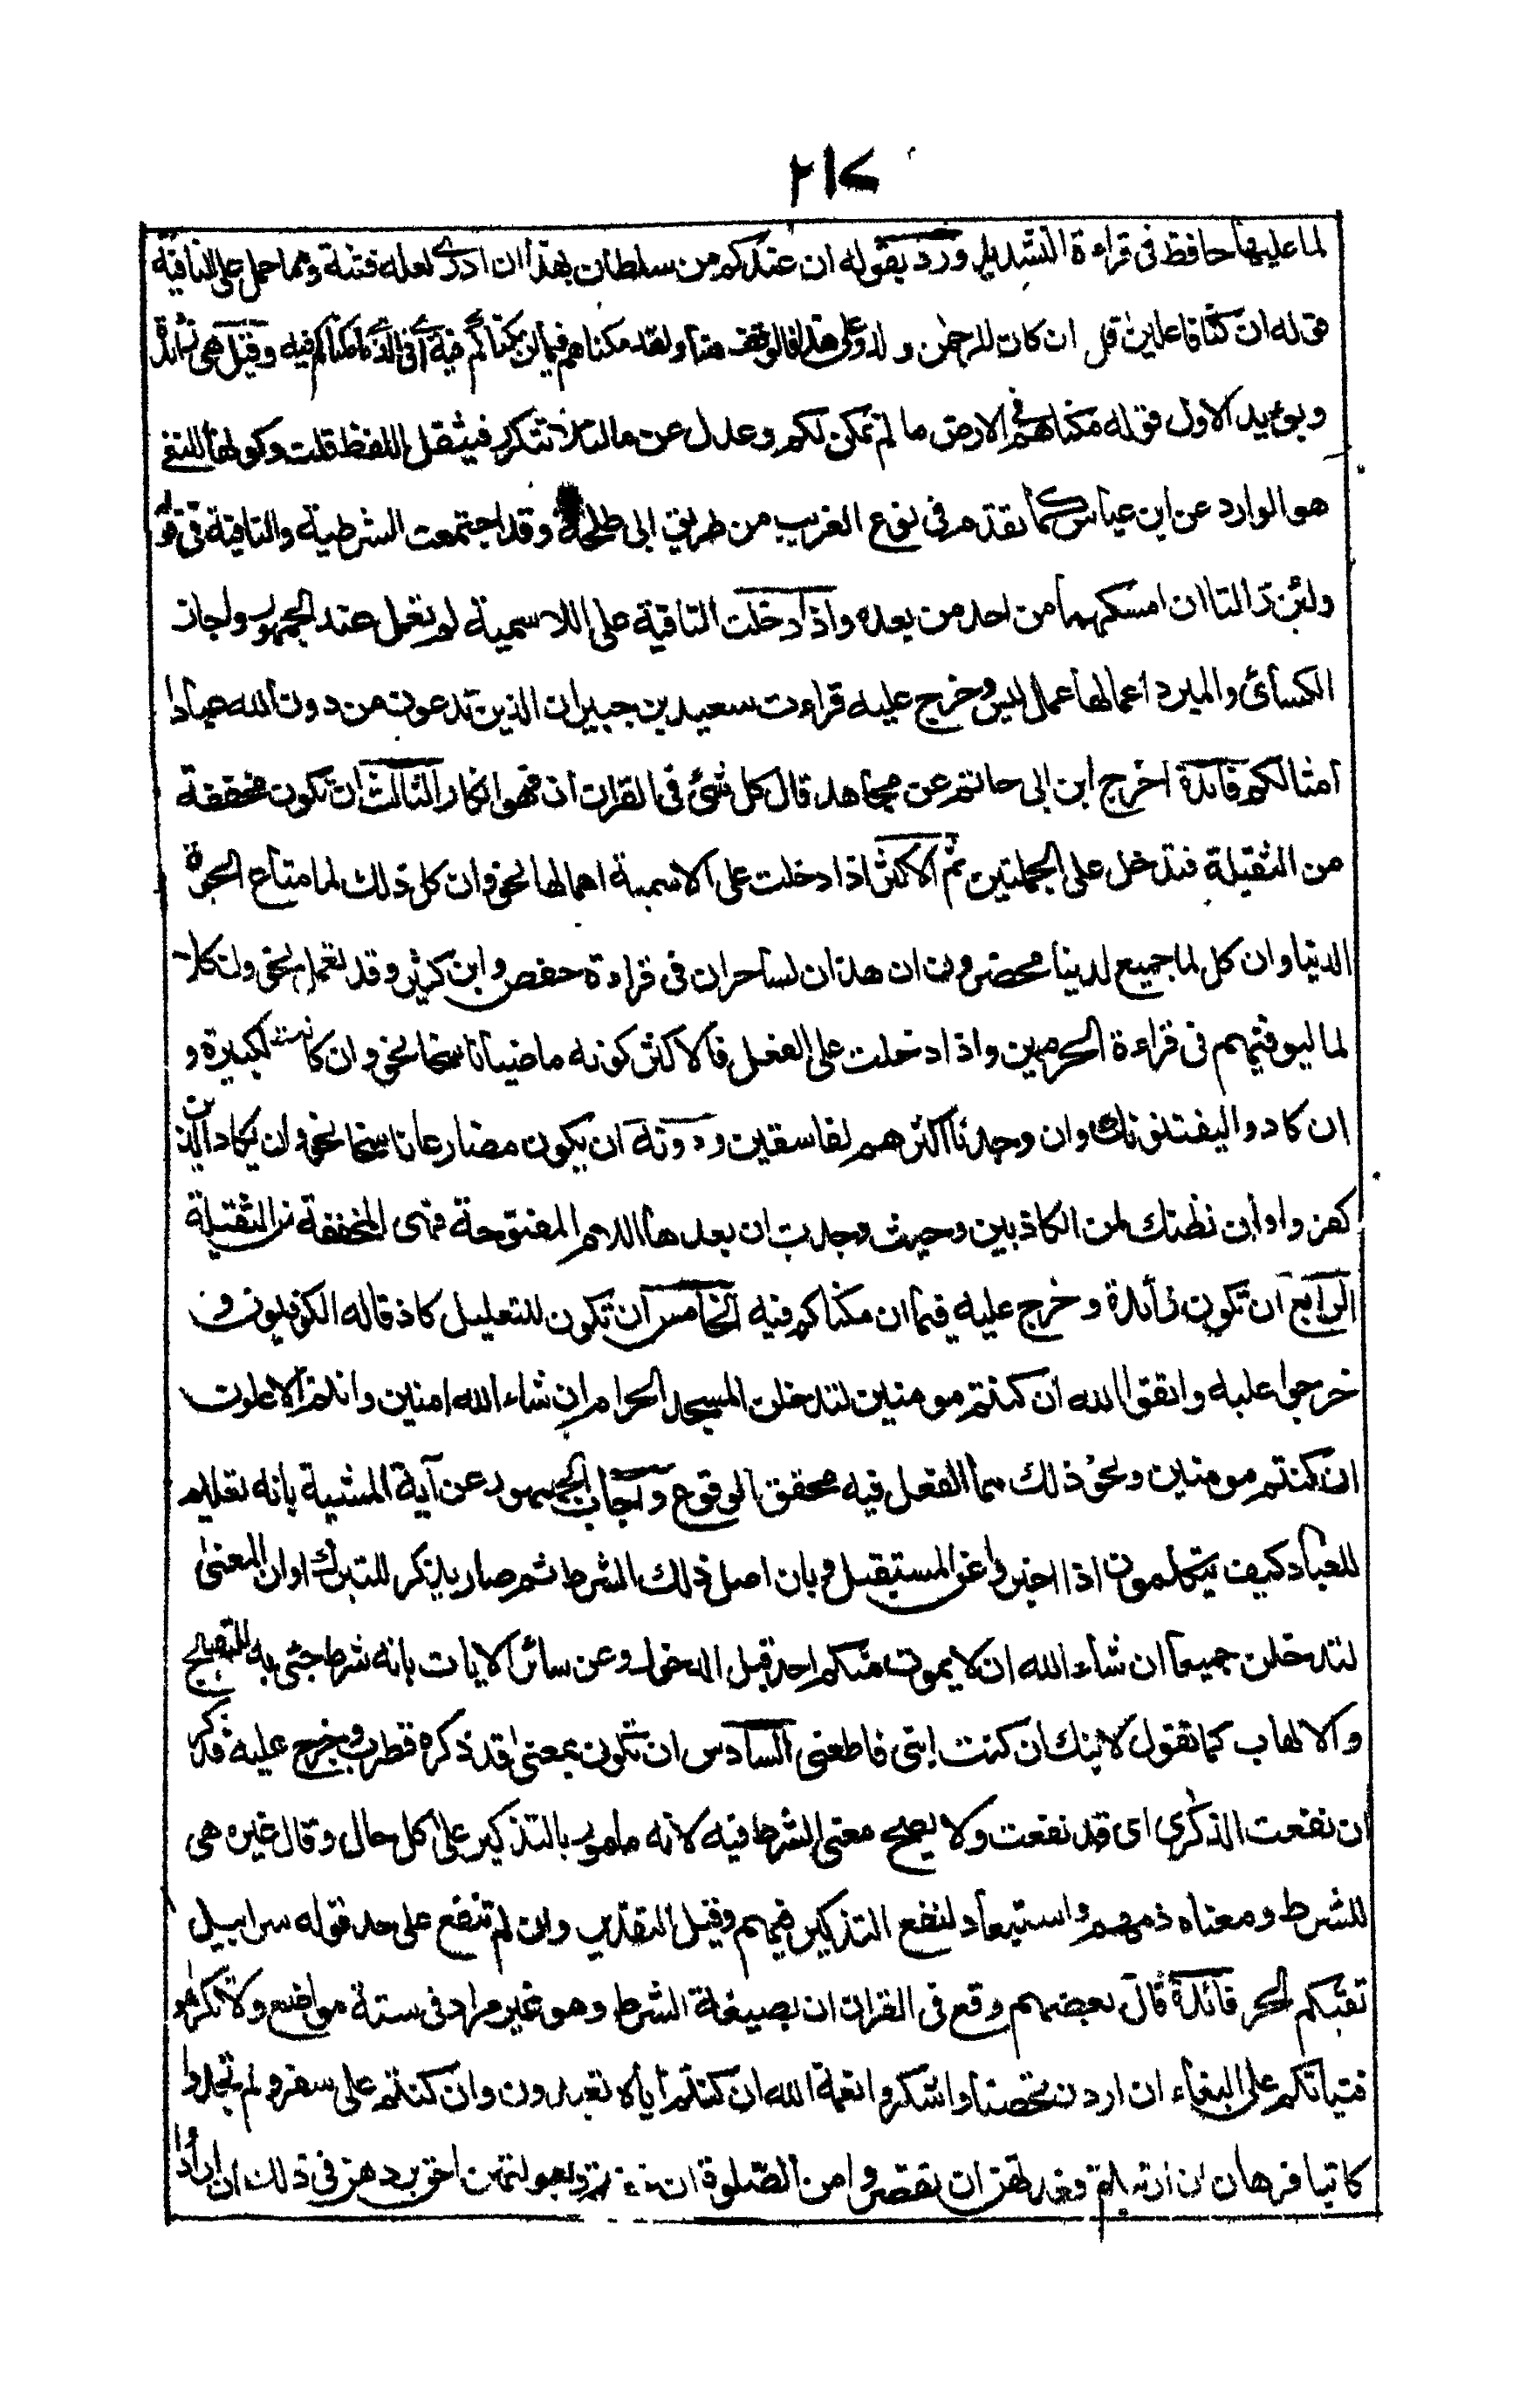 ٢١٧
لما عليها حافظ فى قراءة التشديد ورد بقوله ان عندكم من سلطان بهذا ان ادرى لعله فتنة ومما حمل على النافية
قوله ان كنا فاعلين قل ان كان للرحمن ولد وعلى هذا فالوقف هنا ولقد مكناهم فيما ان مكناكم فيه اى فى الذى ما مكناكم فيه وقيل هى زائدة
ويؤيد الاول قوله مكناهم فى الارض ما لم نمكن لكم وعدل عن ما لئلا تتكرر فيثقل اللفظ قلت وكونها للنفى
هو الوارد عن ابن عباس كما تقدم فى نوع الغريب من طريق ابى طلحة وقد اجتمعت الشرطية والنافية فى قوله
ولئن زالتا ان امسكهما من احد من بعده واذا دخلت النافية على الاسمية لم تعمل عند الجمهور واجاز
الكسائى والمبرد اعمالها عمل ليس وخرج عليه قراءت سعيد بن جبير ان الذين تدعون من دون الله عبادا
امثالكم فائدة اخرج ابن ابى حاتم عن مجاهد قال كل شئ فى القران ان فهو انكار الثالث ان تكون مخففة
من الثقيلة فتدخل على الجملتين ثم الاكثر اذا دخلت على الاسمية اهمالها نحو وان كل ذلك لما متاع الحيوة
الدنيا وان كل لما جميع لدينا محضرون ان هذان لساحران فى قراءة حفص وابن كثير وقد تعمل نحو وان كلا
لما ليوفينهم فى قراءة الحرميين واذا دخلت على الفعل فالاكثر كونه ماضيا ناسخا نحو وان كانت لكبيرة و
ان كادوا ليفتنونك وان وجدنا اكثرهم لفاسقين ودونه ان يكون مضارعا ناسخا نحو وان يكاد الذين
كفروا وان نظنك لمن الكاذبين وحيث وجدت ان بعدها اللام المفتوحة فهى المخففة من الثقيلة
الرابع ان تكون زائدة وخرج عليه فيما ان مكناكم فيه الخامس ان تكون للتعليل كاذ قاله الكوفيون و
خرجوا عليه واتقوا الله ان كنتم مومنين لتدخلن المسجد الحرام ان شاء الله امنين وانتم الاعلون
ان كنتم مومنين ونحو ذلك مما الفعل فيه محقق الوقوع واجاب الجمهور عن آية المشية بانه تعليم
للعباد كيف يتكلمون اذا اخبروا عن المستقبل وبان اصل ذلك الشرط ثم صار يذكر للتبرك او ان المعنى
لتدخلن جميعا ان شاء الله ان لا يموت منكم احد قبل الدخول وعن سائر الايات بانه شرط جئى به للتهييج
والالهاب كما تقول لابنك ان كنت ابنى فاطعنى السادس ان تكون بمعنى قد ذكره قطرب وخرج عليه فذكر
ان نفعت الذكرى اى قد نفعت ولا يصح معنى الشرط فيه لانه مامور بالتذكير على كل حال وقال غيره هى
للشرط ومعناه ذمهم واستبعاد لنفع التذكير فيهم وقيل التقدير وان لم تنفع على حد قوله سرابيل
تقيكم الحر فائدة قال بعضهم وقع فى القران ان بصيغة الشرط وهو غير مراد فى ستة مواضع ولا تكرهوا
فتياتكم على البغاء ان اردن تحصنا واشكروا نعمة الله ان كنتم اياه تعبدون وان كنتم على سفر ولم تجدوا
كاتبا فرهان ان ارتبتم فعدتهن ان تقصروا من الصلوة ان خفتم وبعولتهن احق بردهن فى ذلك ان ارادوا